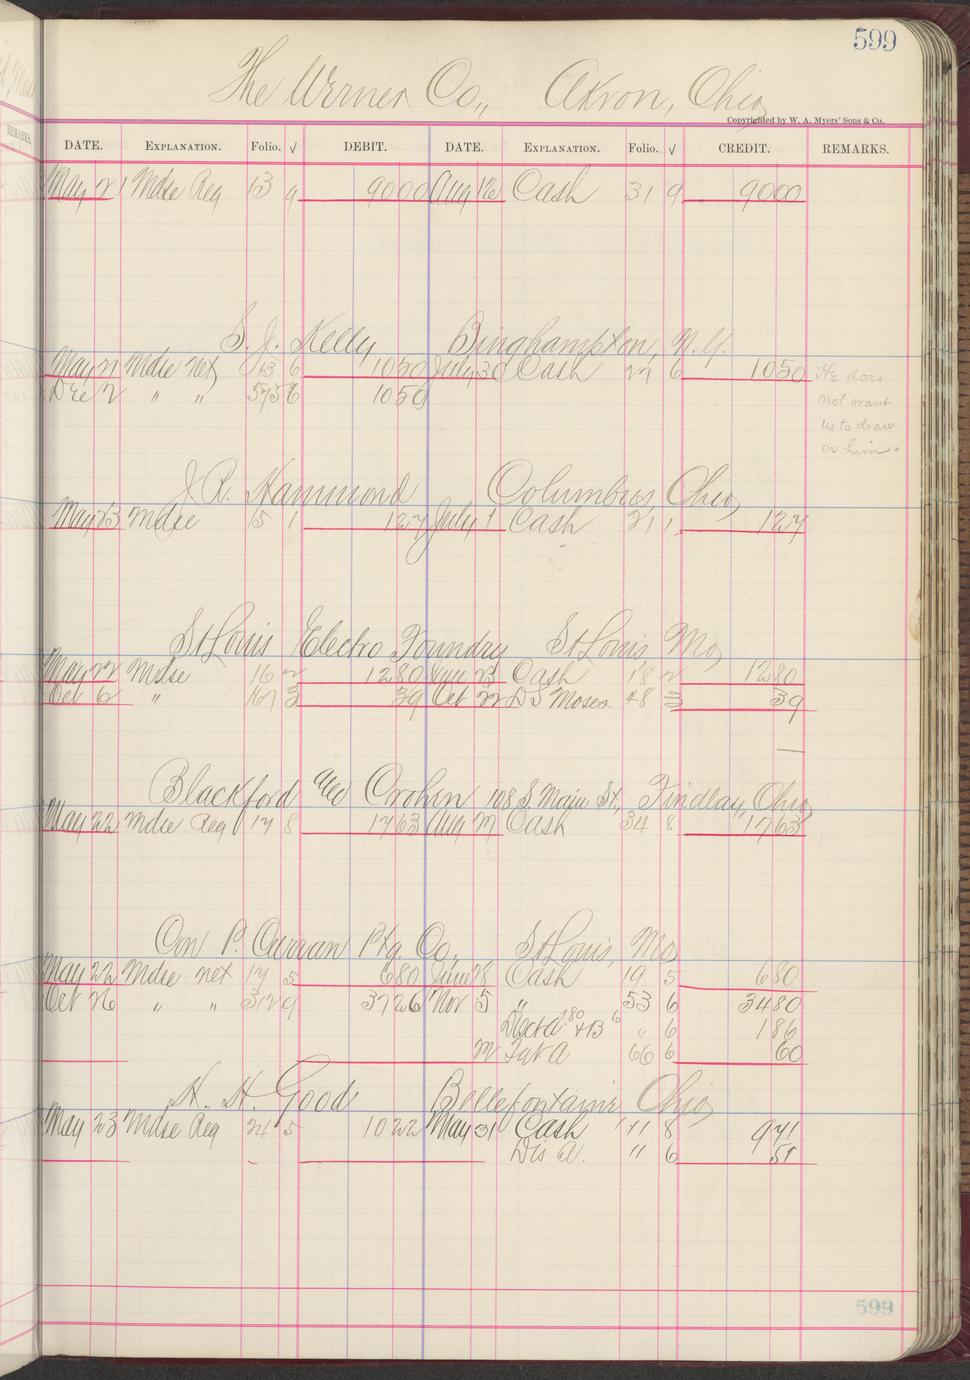 599
The Werner Co., Akron, Ohio
Copyrighted by W. A. Myers' Sons & Co.
DATE. EXPLANATION. Folio. √ DEBIT. DATE. EXPLANATION. Folio. √ CREDIT. REMARKS.
May 21 Mdse Reg 13 9 9000 Aug Cash 31 9 9000
S. J. Kelly Binghampton, N.Y.
May 21 Mdse net 13 6 1050 July 30 Cash 27 6 1050 He does
Dec 2 " " 575 6 1050 not want
us to draw
on him.
J. R. Hammond Columbus, Ohio
May 23 Mdse 15 1 127 July 1 Cash 21 1 127
St Louis Electro Foundry St Louis, Mo
May 22 Mdse 16 2 1280 23 Cash 18 2 1280
Oct 6 " 167 3 39 Oct 22 D S Moses 48 3 39
Blackford and 108 S Main St., Findlay, Ohio
May 22 Mdse Reg 17 8 1763 Aug 27 Cash 34 8 1763
Con P. Curran Ptg. Co., St Louis, Mo
May 22 Mdse net 17 5 680 June 8 Cash 19 5 680
Oct 26 " " 312 9 3726 Nov 5 " 53 6 3480
" 6 186
A 66 6 60
H. H. Good Bellefontaine Ohio
May 23 Mdse Reg 24 5 1022 May 31 Cash 11 8 971
Dis A. " 6 51
599